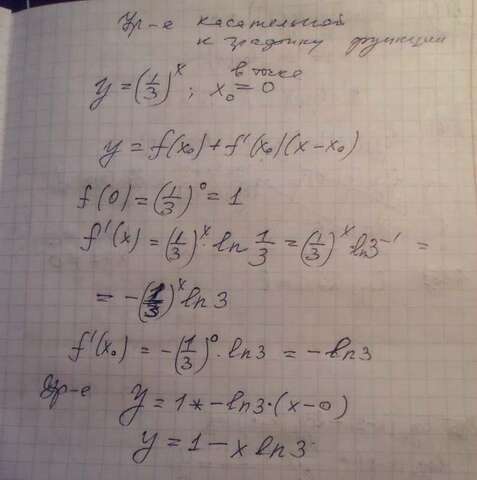 Ур-е касательной
к графику функции
y = (1/3)^x ; в точке x₀ = 0
y = f(x₀) + f'(x₀)(x - x₀)
f(0) = (1/3)^0 = 1
f'(x) = (1/3)^x · ln 1/3 = (1/3)^x ln3^-1 =
= -(1/3)^x ln 3
f'(x₀) = -(1/3)^0 · ln3 = -ln3
Ур-е y = 1 * -ln3·(x-0)
y = 1 - x ln3